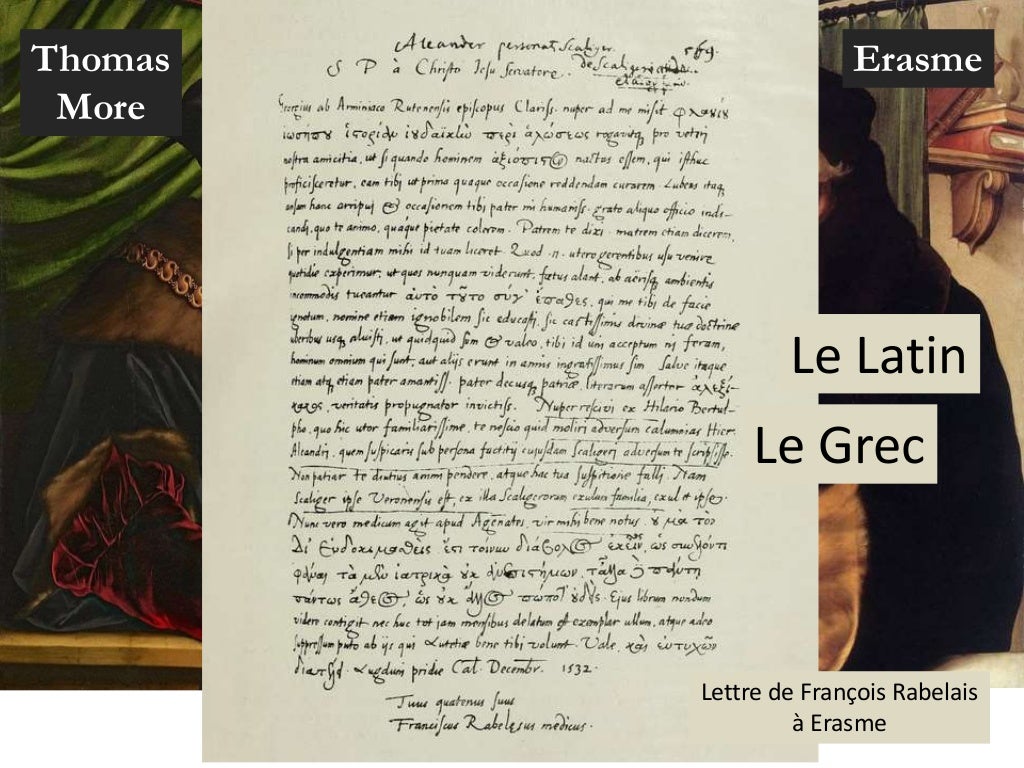 Thomas
More
Erasme
Aleander personat. Scaliger. 569.
S P à Christo Iesu Servatore. de Scaligero
Georgius ab Arminiaco Rutenensis episcopus Clariss. nuper ad me misit φλαυίυ
ἰωσήπυ ἱστορίαν ἰυδαϊκὴν περὶ ἁλώσεως rogavitque, pro veteri
nostra amicitia, ut si quando hominem ἀξιόπιστον nactus essem, qui isthuc
proficisceretur, eam tibi ut prima quaque occasione reddendam curarem. Lubens itaque
ansam hanc arripui & occasionem tibi pater mi humaniss. grato aliquo officio indi-
candi, quo te animo, quaque pietate colerem. Patrem te dixi. matrem etiam dicerem,
si per indulgentiam mihi id tuam liceret. Quod .n. utero gerentibus usu venire
quotidie experimur, ut quos nunquam viderunt, fœtus alant, ab aërisque ambientis
incommodis tueantur αὐτὸ τȣ̃το σύγ' ἔπαθες, qui me tibi de facie
ignotum, nomine etiam ignobilem sic educasti, sic castissimis divinæ tuæ doctrinæ
uberibus usque aluisti, ut quidquid sum & valeo, tibi id uni acceptum ni feram,
hominum omnium qui sunt, aut aliis erunt in annis ingratissimus sim. Salve itaque
etiam atque etiam pater amantiss. pater decusque patriæ, literarum assertor ἀλεξί-
κακος, veritatis propugnator invictiss. Nuper rescivi ex Hilario Bertul-
pho, quo hic utor familiarissime, te nescio quid moliri adversum calumnias Hier.
Aleandri, quem suspicaris sub persona factitii cuiusdam Scaligeri adversum te scripsisse.
Non patiar te diutius animi pendere, atque hac tua suspitione falli. Nam
Scaliger ipse Veronensis est, ex illa Scaligerorum exulum familia, exul et ipse.
Nunc vero medicum agit apud Agenates, vir mihi bene notus. ȣ̓ μὰ τὸν
Δί' εὐδοκιμασθεὶς, ἔστι τοίνυν διάβολος ἐκεῖνος, ὡς συνελόντι
φάναι τὰ μὲν ἰατρικὰ ȣ̓κ ἀνεπιστήμων, τἄλλα δὲ πάντη
πάντως ἄθεος, ὡς ȣ̓κ ἄλλος πώποτ' ȣ̓δείς. Eius librum nondum
videre contigit nec huc tot iam mensibus delatum est exemplar ullum, atque adeo
suppressum puto ab iis qui Lutetiæ bene tibi volunt. Vale, καὶ εὐτυχῶν
διατέλει. Lugduni pridie Cal. Decembr. 1532.
Tuus quatenus suus
Franciscus Rabelæsus medicus.
Le Latin
Le Grec
Lettre de François Rabelais
à Erasme